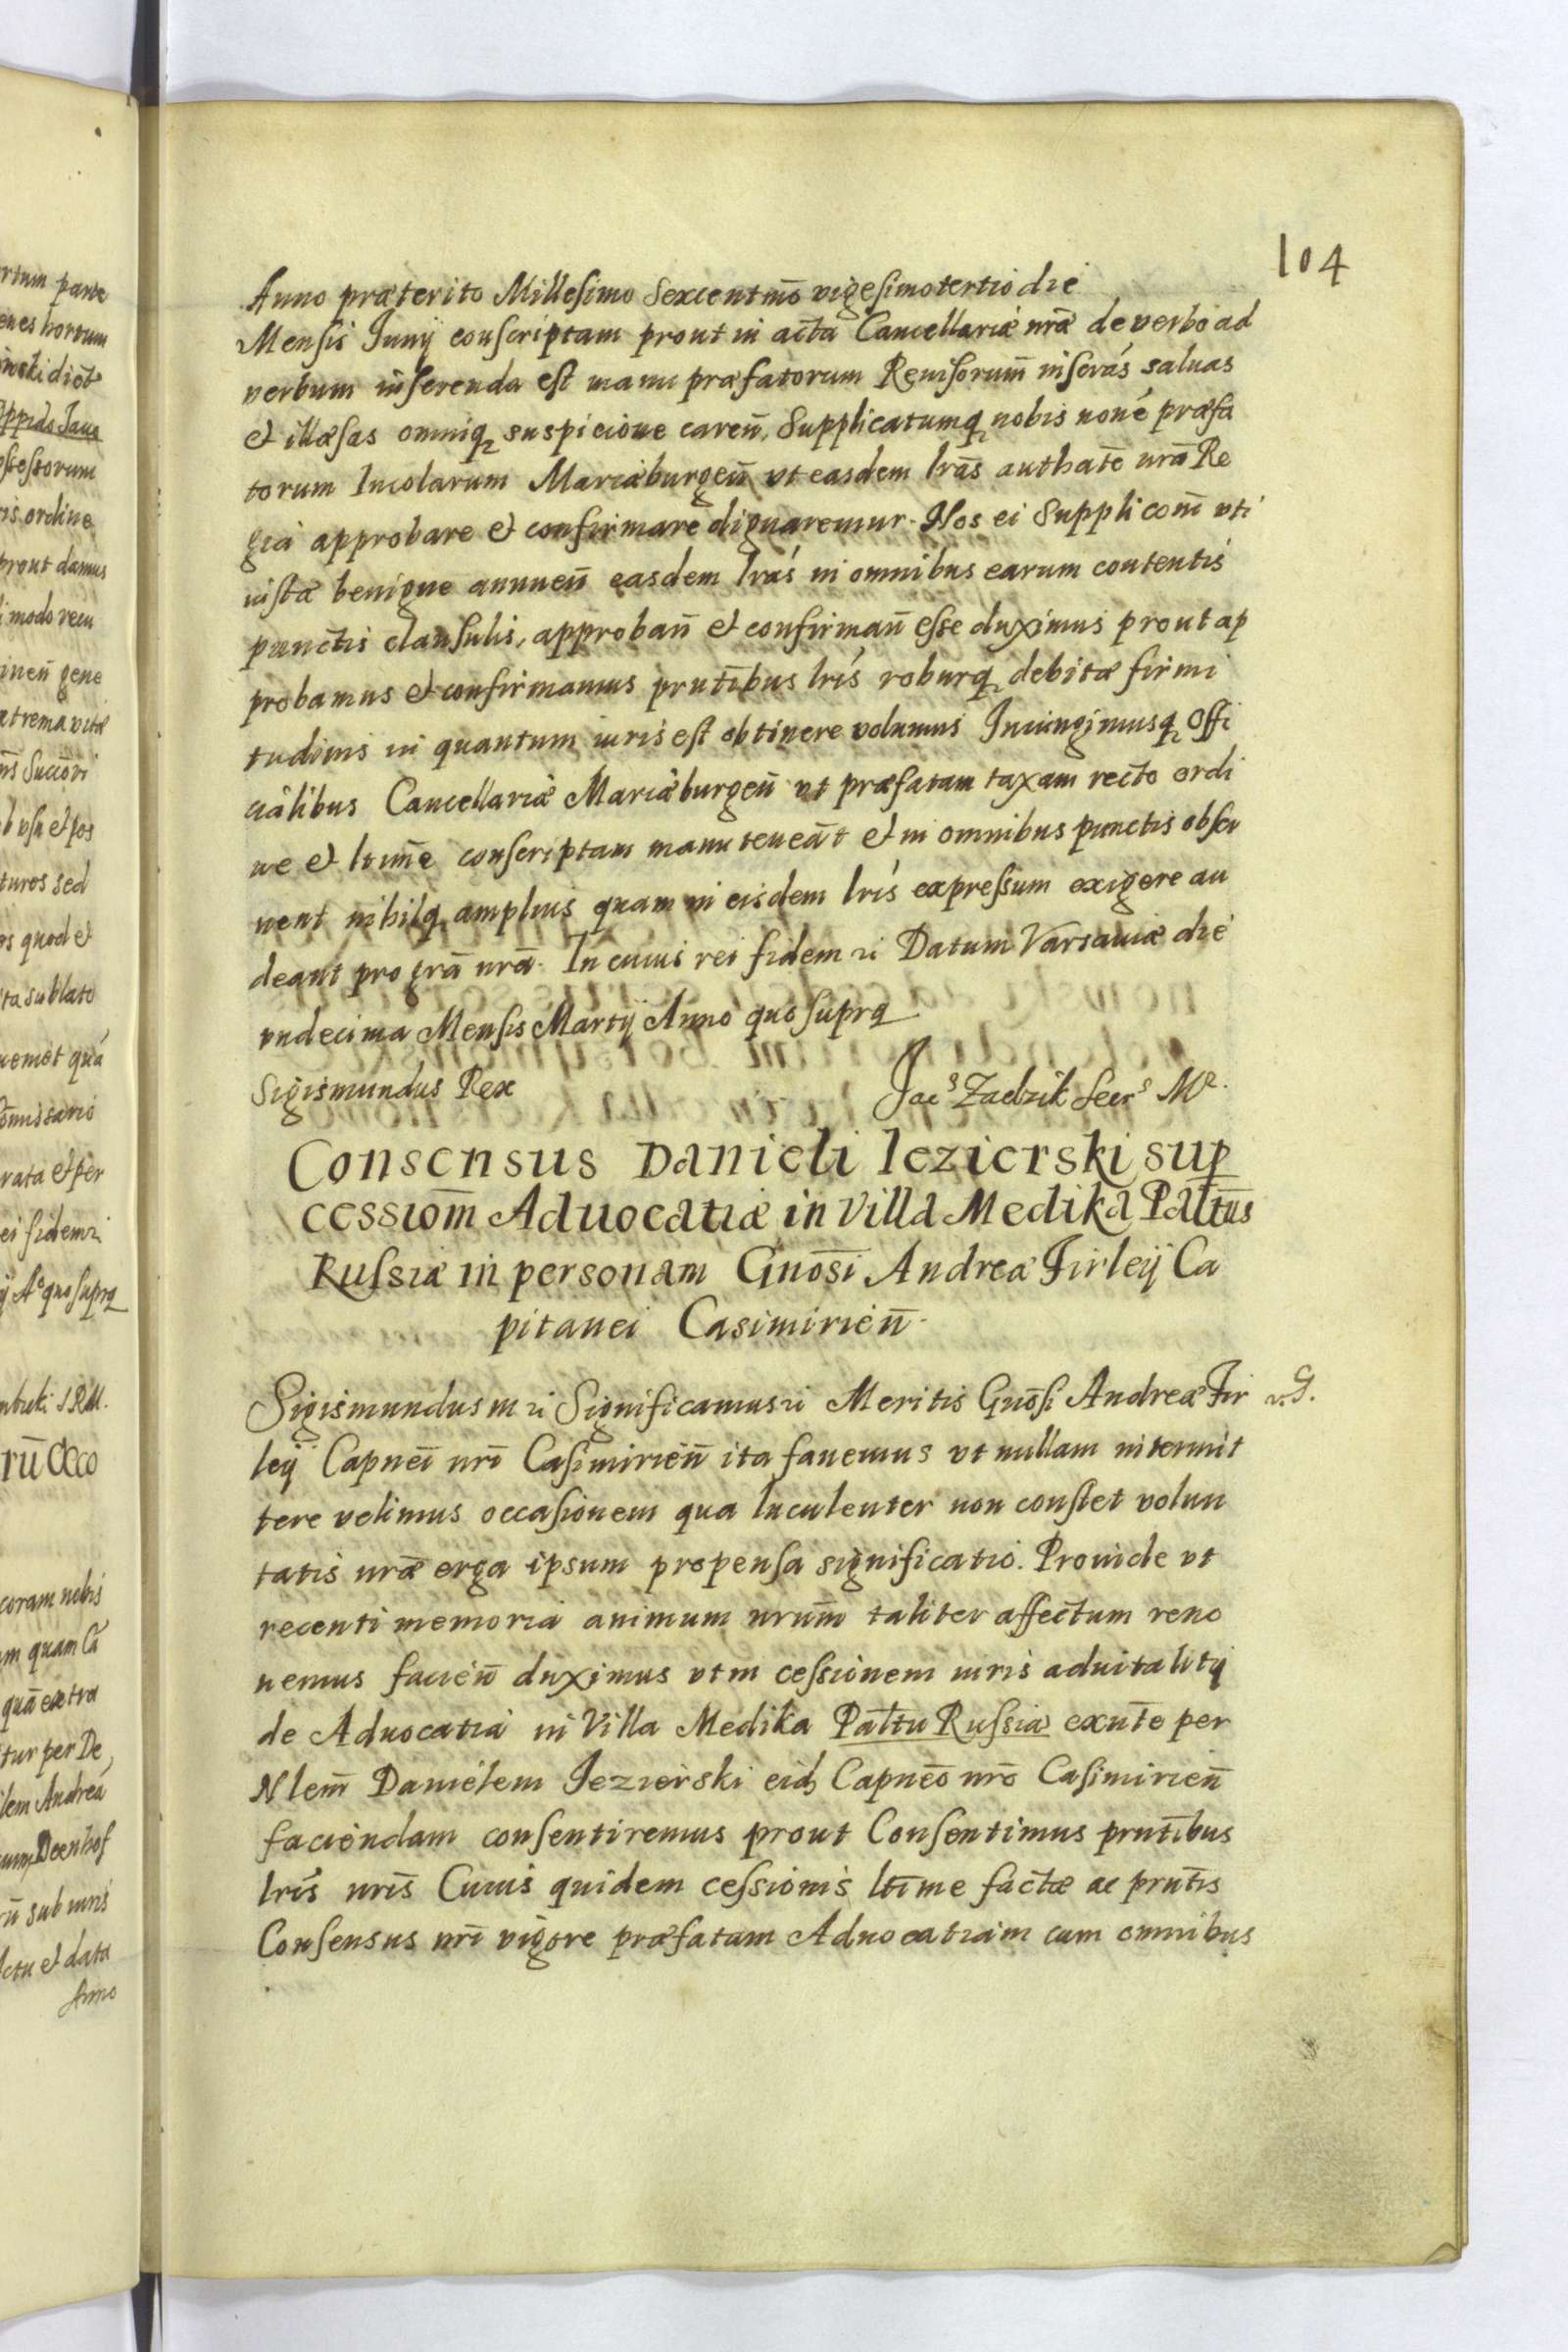 104
Anno præterito Millesimo Sexcentm̄o vigesimotertio die
Mensis Junij conscriptam prout in acta Cancellariæ nr̄æ de verbo ad
verbum inserenda est manu præfatorum Reuisorum̄ inserás saluas
et illæsas omniq suspicione careñ, Supplicatumq nobis noné præfa
torum Incolarum Mariæburgeñ vt easdem lrās authat̄e nr̄a Re
gia approbare et confirmare dignaremur. Nos ei Suppliconi̅ vti
iustæ benigne annueñ easdem lrás in omnibus earum contentis
punctis clausulis, approbañ et confirmañ esse duximus prout ap
probamus et confirmamus prnt̄ibus lrís roburq debitæ firmi
tudinis in quantum iuris est obtinere volumus Iniungimusq Offi
cialibus Cancellariæ Mariæburgeñ vt præfatam taxam recto ordi
ne et ltim̄e conscriptam manuteneāt et in omnibus punctis obser
uent nihilq amplius quam in eisdem lrís expressum exigere au
deant pro grā nr̄a. In cuius rei fidem ꝛi Datum Varsauiæ die
vndecima Mensis Martij Anno quo supra
Sigismundus Rex Jacs Zadzik Secrs Mr.
Consensus Danieli Iezierski sup
cessiom̄ Aduocatiæ in Villa Medika Palt̄us
Russiæ in personam Gnōsi Andreæ Firleij Ca
pitanei Casimirieñ.
Sigismundus III ꝛi Significamus ꝛi Meritis Gnōsi Andreæ Fir
leij Capnei̅ nrī Casimirieñ ita fauemus vt nullam intermit
tere velimus occasionem qua luculenter non constet volun
tatis nr̄æ erga ipsum propensa significatio. Prouide vt
recenti memoria animum nrum̄ taliter affectum reno
uemus facieñ duximus vt in cessionem iuris aduitalitij
de Aduocatia in Villa Medika Palt̄u Russiæ exnt̄e per
Nlem̄ Danielem Jezierski eidꝫ Capneō nrō Casimirieñ
faciendam consentiremus prout Consentimus prnt̄ibus
lrīs nrīs Cuius quidem cessionis ltīme factæ ac prnt̄is
Consensus nrī vigore præfatam Aduocatiam cum omnibus